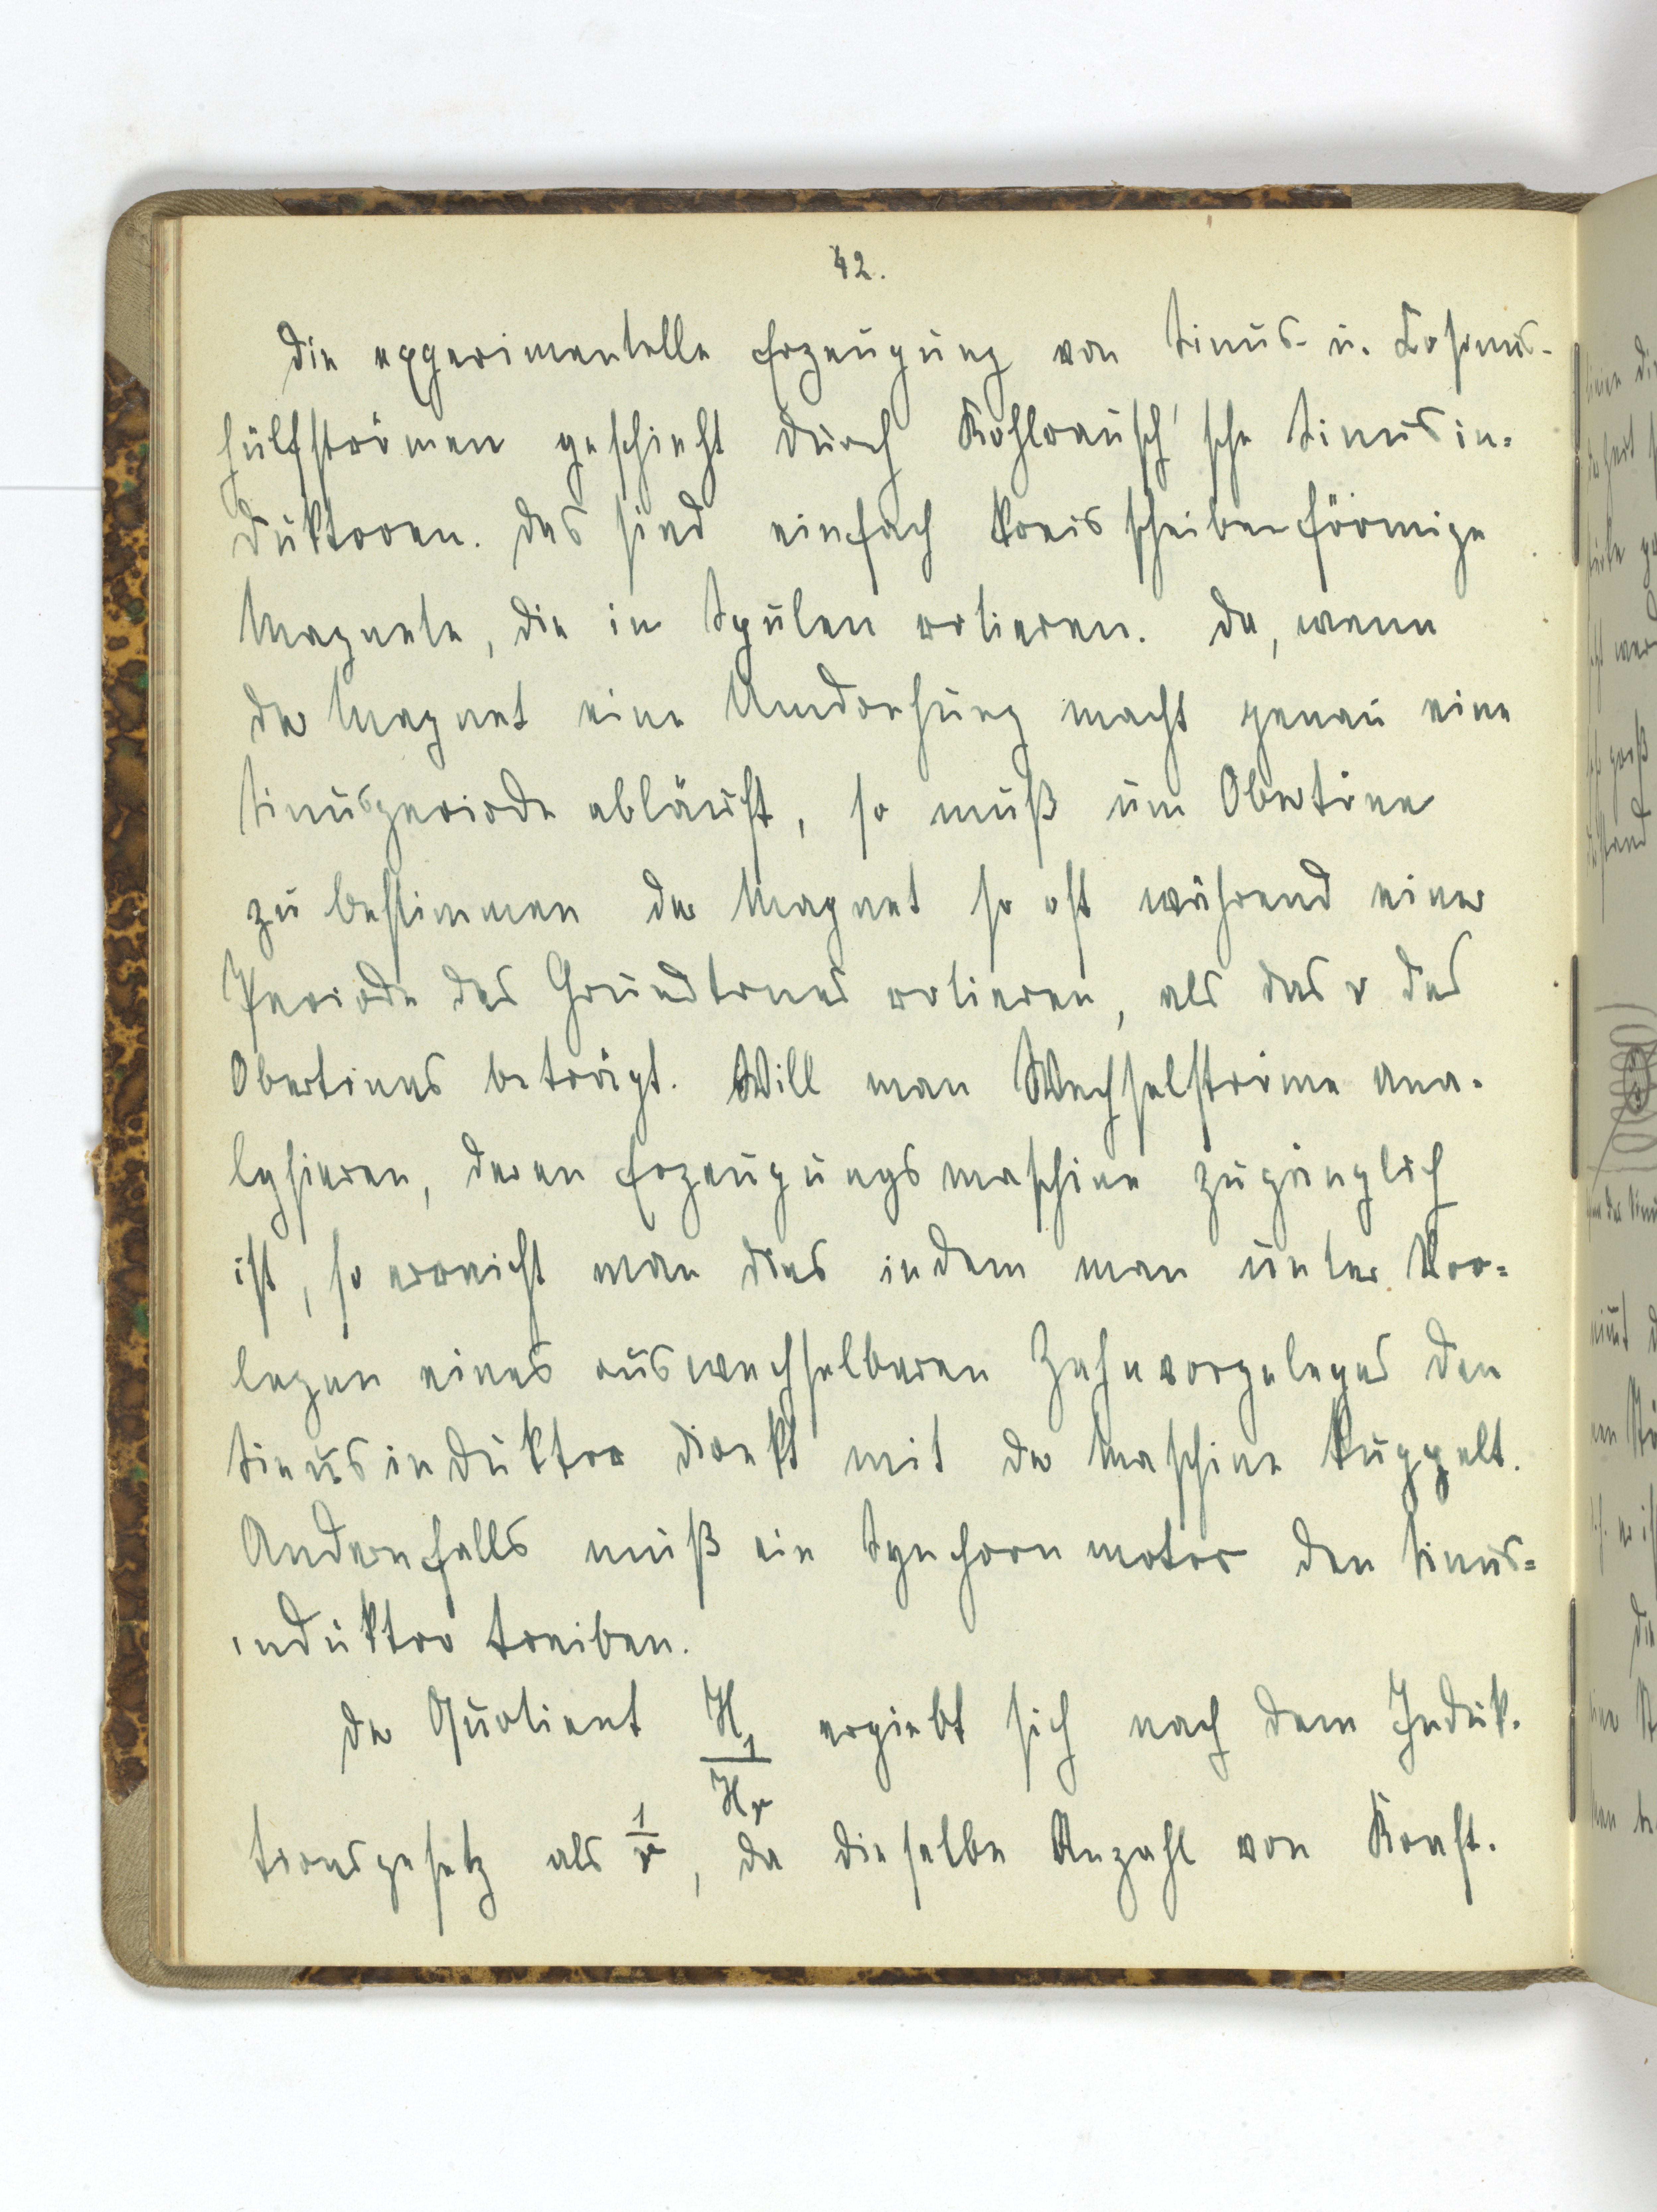 42.
Die experimentelle Erzeugung von Sinus- u. Kosinus-
hülfströmen geschieht durch Kohlrausch'sche Sinusin=
duktoren. Das sind einfach kreisscheibenförmige
Magnete, die in Spulen rotieren. Da, wenn
der Magnet eine Umdrehung macht genau eine
Sinusperiode abläuft, so muß um Obertöne
zu bestimmen der Magnet so oft während einer
Periode des Grundtones rotieren, als das r des
Obertones beträgt. Will man Wechselströme ana-
lysieren, deren Erzeugungsmaschine zugänglich
ist, so erreicht man dies indem man unter Vor=
legen eines auswechselbaren Zahnvorgeleges den
Sinusinduktor direkt mit der Maschine kuppelt.
Andernfalls muß ein Synchronmotor den Sinus=
induktor treiben.
Der Quotient H₁/Hᵣ ergiebt sich nach dem Induk-
tionsgesetz als 1/r, da dieselbe Anzahl von Kraft-